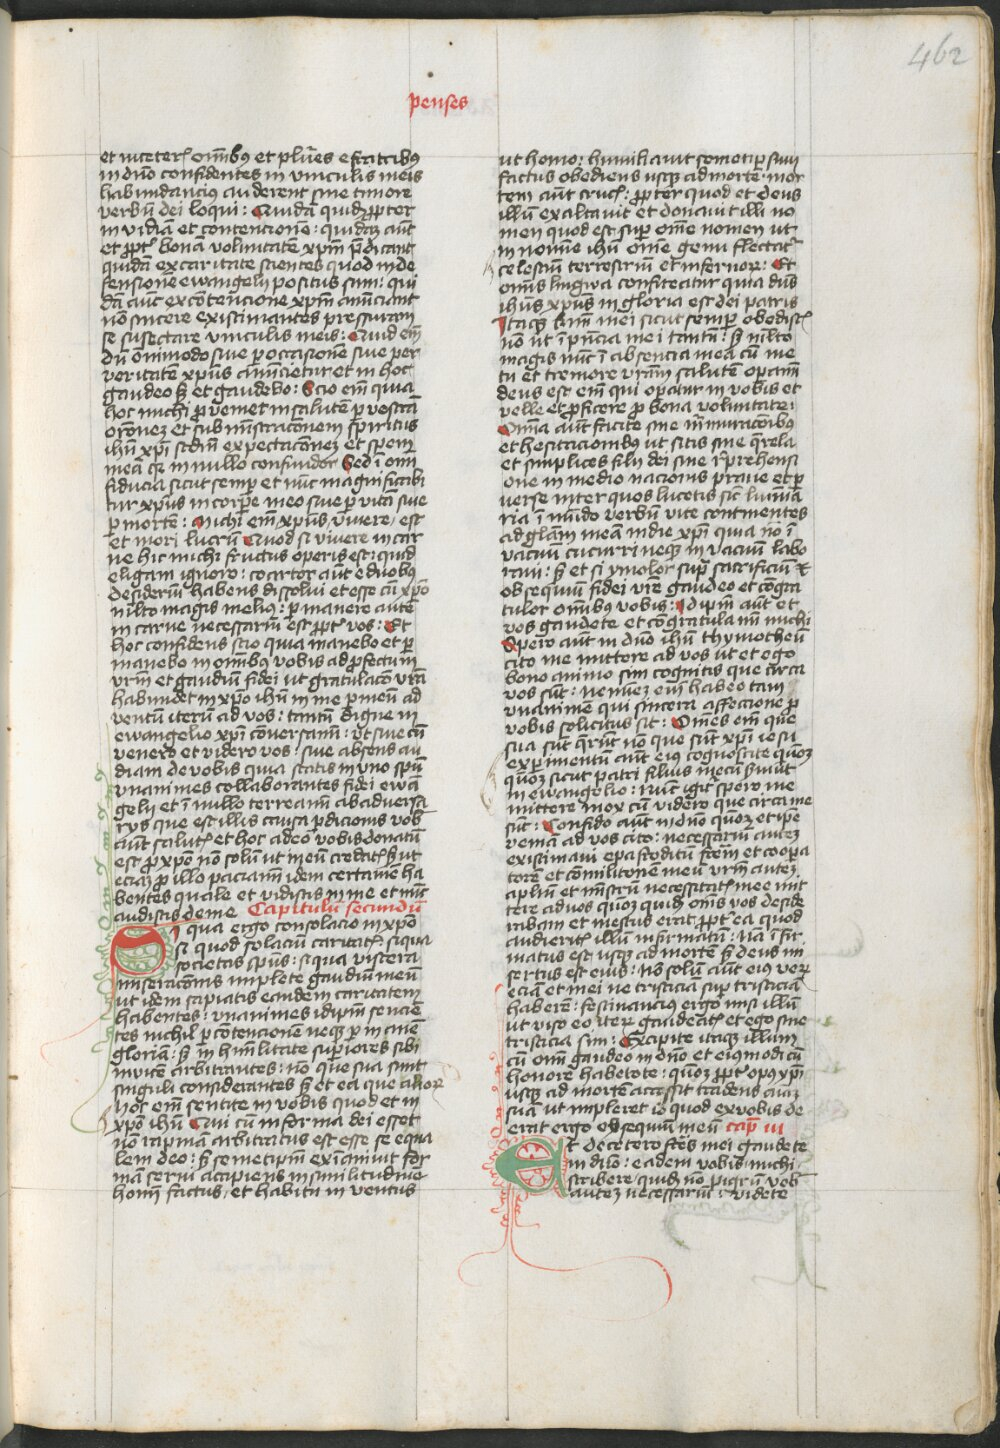 462
penses
et in ceteris omnibus et plures e fratribus
in dno confidentes in vinculis meis
habundancius auderent sine timore
verbū dei loqui : Quidā quidē propter
in vidiā et contencionē : quidaz aūt
et ppt bonam voluntatē xpm pdicant
quidā ex caritate scientes quod in de
fensione ewangelij positus sum : qui
dā aūt ex cōtencione xpm annūciant
nō sincere existimantes pressuram
se suscitare vinculis meis : Quid em
dū omnimodo siue p occasionē siue per
veritatem xpus annūcietur et in hoc
gaudeo sz et gaudebo : Scio em quia
hoc michi pveniet in salutē p vestrā
oronez et subministracōnem spiritus
ihū xpi scdm expectacōnez et spem
meā qz in nullo confundor Sed ī omi
fiducia sicut semp et nūc magnificabi
tur xpus in corpe meo siue p vitā siue
p mortē : Michi em xpus vivere est
et mori lucrū Quod si vivere in car
ne hic michi fructus operis est : quid
eligam ignoro : coartor aūt e duobus
desideriū habens dissolui et esse cū xpo
mlto magis melius : p manere autē
in carne necessariū est ppt vos : Et
hoc confidens scio quia manebo et p
manebo in omnibus vobis ad pfectum
vrm et gaudiū fidei ut gratulacō vrā
habundet in xpo ihū in me p meū ad
ventū iterū ad vos : tantū digne in
ewangelio xpi conversamī : ut siue cū
venero et videro vos : siue absens au
diam de vobis quia statis in vno spū
vnanimes collaborantes fidei ewā
gelij et ī nullo terreamī ab adversa
rijs que est illis causa pdicionis vob
aūt salutis et hoc a deo vobis donatū
est p xpo nō solū ut in eū credatis sz ut
eciaz p illo paciamī idem certamē ha
bentes quale et vidistis in me et nūc
audistis de me Capitulū secundū
Si qua ergo consolacio in xpo
si quod solaciū caritatis si qua
societas spūs : si qua viscera
miseracōnis implete gaudiū meū
ut idem sapiatis eandem caritatem
habentes : vnanimes idipm sencien
tes nichil p cōtencionem neqz p inanē
gloriā : sz in humilitate supiores sibi
invicē arbitrantes : nō que sua sunt
singuli considerantes sz et ea que alior
hoc em sentite in vobis quod et in
xpo ihū Qui cū in forma dei esset
nō rapinam arbitratus est esse se equa
lem deo : sz semetipm exinanivit for
mā servi accipiens in similitudinē
homī factus : et habitu in ventus
ut homo : humiliavit semetipsum
factus obediens usqz ad mortē mor
tem aūt crucis : ppter quod et deus
illū exaltavit et donavit illi no
men quod est sup omē nomen ut
in nomīe ihū omē genu flectat
celestiū terrestriū et infernor : Et
omis lingwa confiteatur quia dūs
ihūs xpus in gloria est dei patris
Itaqz kmī mei sicut semp obedistis
nō ut ī pncia mei tantū : sz mlto
magis nūc ī absencia mea cū me
tu et tremore vrām salutē opamī
deus est em qui opatur in vobis et
velle et pficere p bona voluntate :
Omia aūt facite sine murmuracōibus
et hesitacionibus ut sitis sine qrela
et simplices filij dei sine reprehensi
one in medio nacionis praue et p
verse inter quos lucetis sic lumina
ria ī mūdo verbū vite continentes
ad gloriam meam in die xpi quia nō ī
vacuū cucurri neqz in vacuū labo
raui : sz et si ymolor supra sacrificiū et
obsequiū fidei vre gaudeo et cōgra
tulor omibus vobis : Idipm aūt et
vos gaudete et cōgratulamī michi
Spero aūt in dno ihū thymotheū
cito me mittere ad vos ut et ego
bono animo sim cognitis que circa
vos sūt : neminez eni habeo tam
vnanimē qui sincera affeccione p
vobis solicitus sit : Omēs em que
sua sūt qrūt nō que sūt xpi iesu
experimentū aūt eius cognoscite quoniaz
quoniaz sicut patri filius mecū suiuit
in ewangelio : hūc igit spero me
mittere mox cū videro que circa me
sūt : Confido aūt in dno quoz et ipe
veniā ad vos cito : necessariū autez
existimaui epafroditū frem et coopa
torē et comilitonē meū vrm autez
aplm et mīstrū necessitatis mee mit
tere ad vos quoz quidē omis vos deside
rabam et mestus erat ppt ea quod
audieritis illum infirmatū : Nā ī fir
matus est usqz ad mortē sz deus mi
sertus est eius : Nō solū aūt eius veru
eciā et mei ne tristiciā sup tristiciā
haberē : festinancius ergo misi illū
ut viso eo iter gaudeatis et ego sine
tristicia sim : Excipite itaqz illum
cū omi gaudeo in dno et eiusmodi cū
honore habetote : quoz ppt opus xpi
usqz ad mortē accessit tradens aiaz
suā ut impleret id quod ex vobis de
erat ergo obsequiū meū cap iii
Et de cetero fres mei gaudete
in dno : eadem vobis michi
scribere quidē nō pigrū vob
autez necessariū : videte